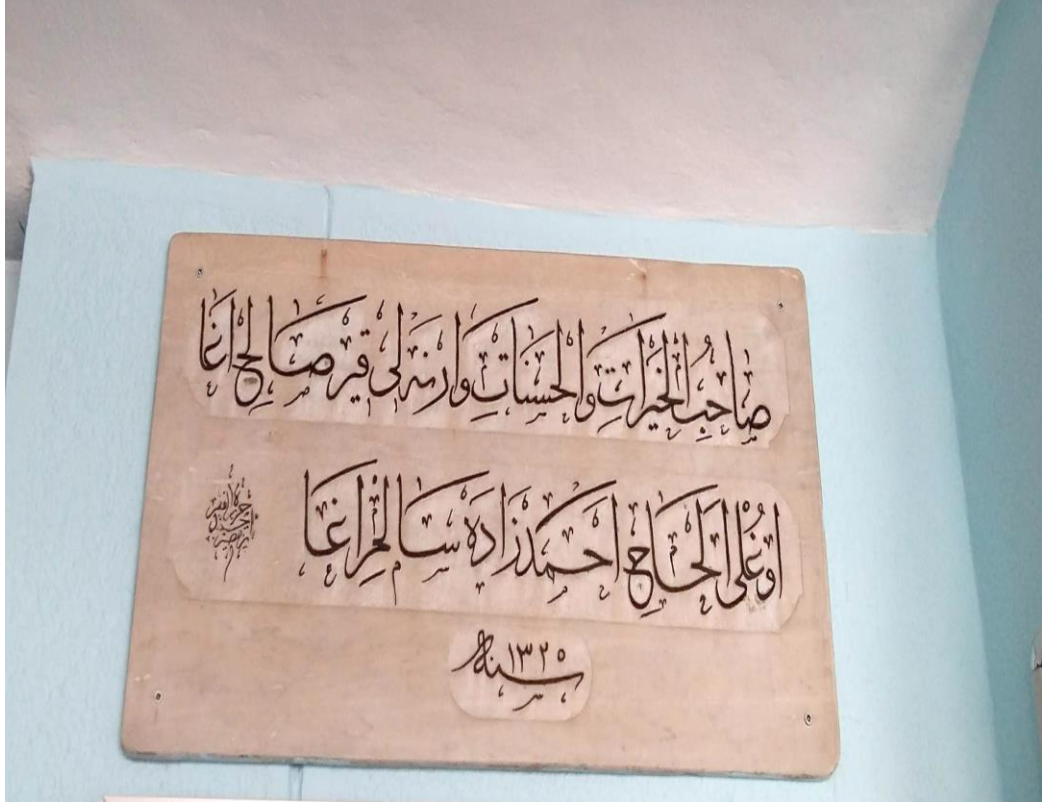 صَاحِبُ الْخَيْرَاتِ وَالْحَسَنَاتِ وَارنه لى قير صَالِح اغَا
اوغْلى الْحَاج احمَد زَادَه سَالِم اغَا
سنه ١٣٢٥